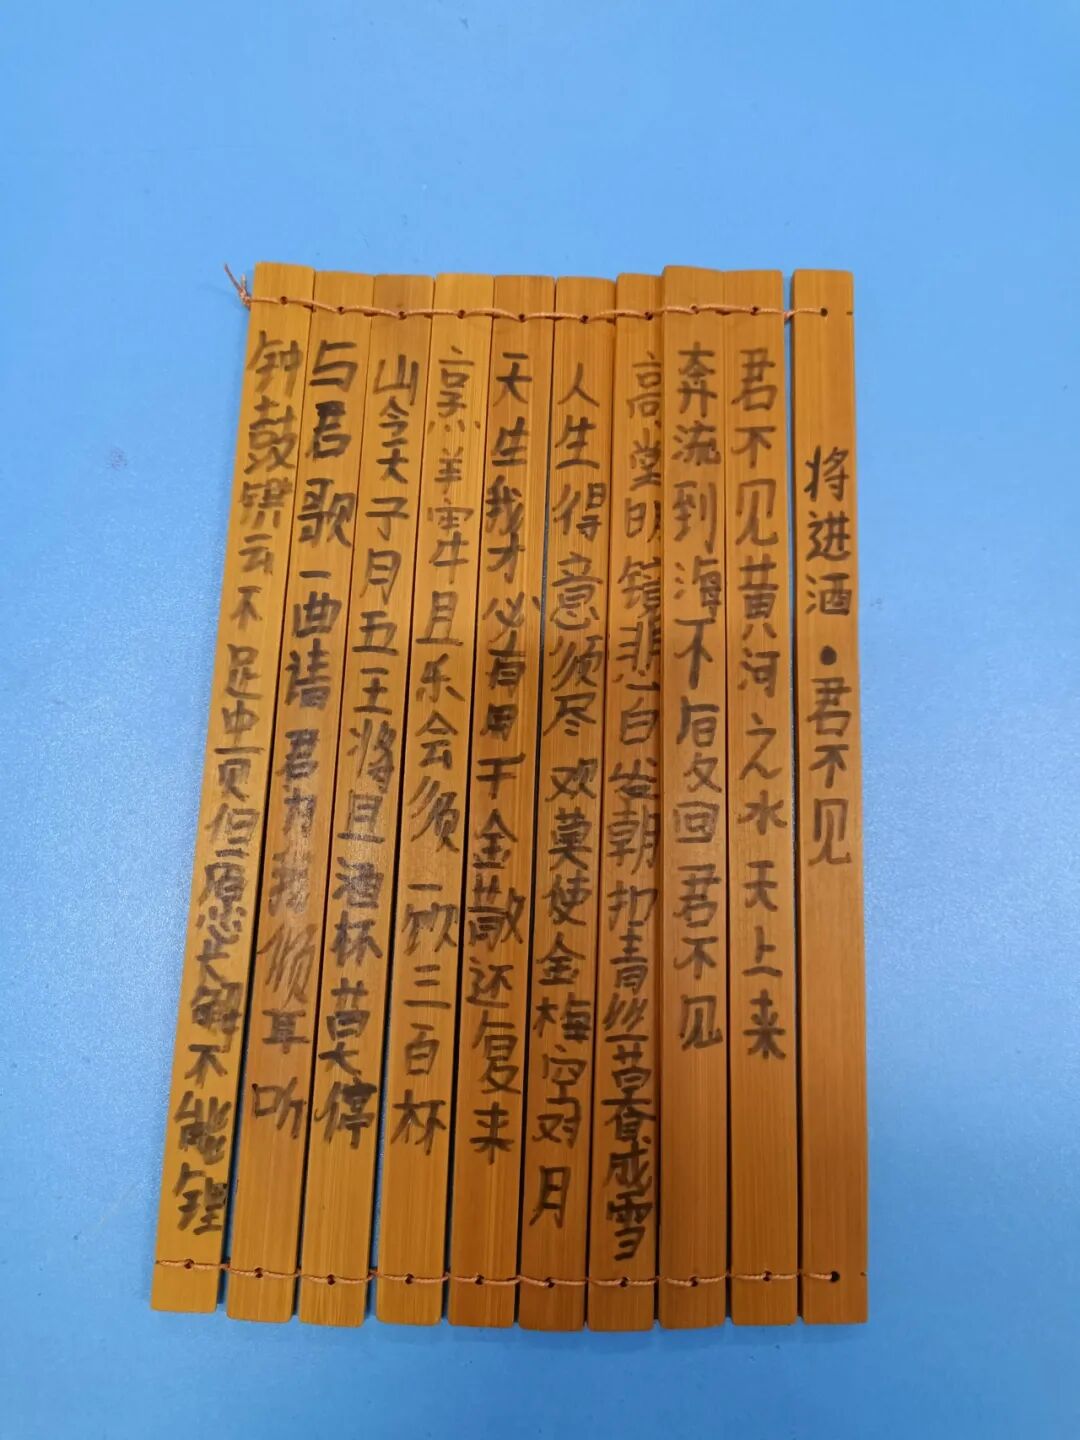 将进酒·君不见
君不见黄河之水天上来
奔流到海不复回君不见
高堂明镜悲白发朝扣青丝暮成雪
人生得意须尽欢莫使金梅空对月
天生我才必有用千金散还复来
烹羊牢且乐会须一饮三百杯
岑夫子月五王将且酒杯莫停
与君歌一曲请君为我倾耳听
钟鼓馔云不足贵但愿长解不能锂